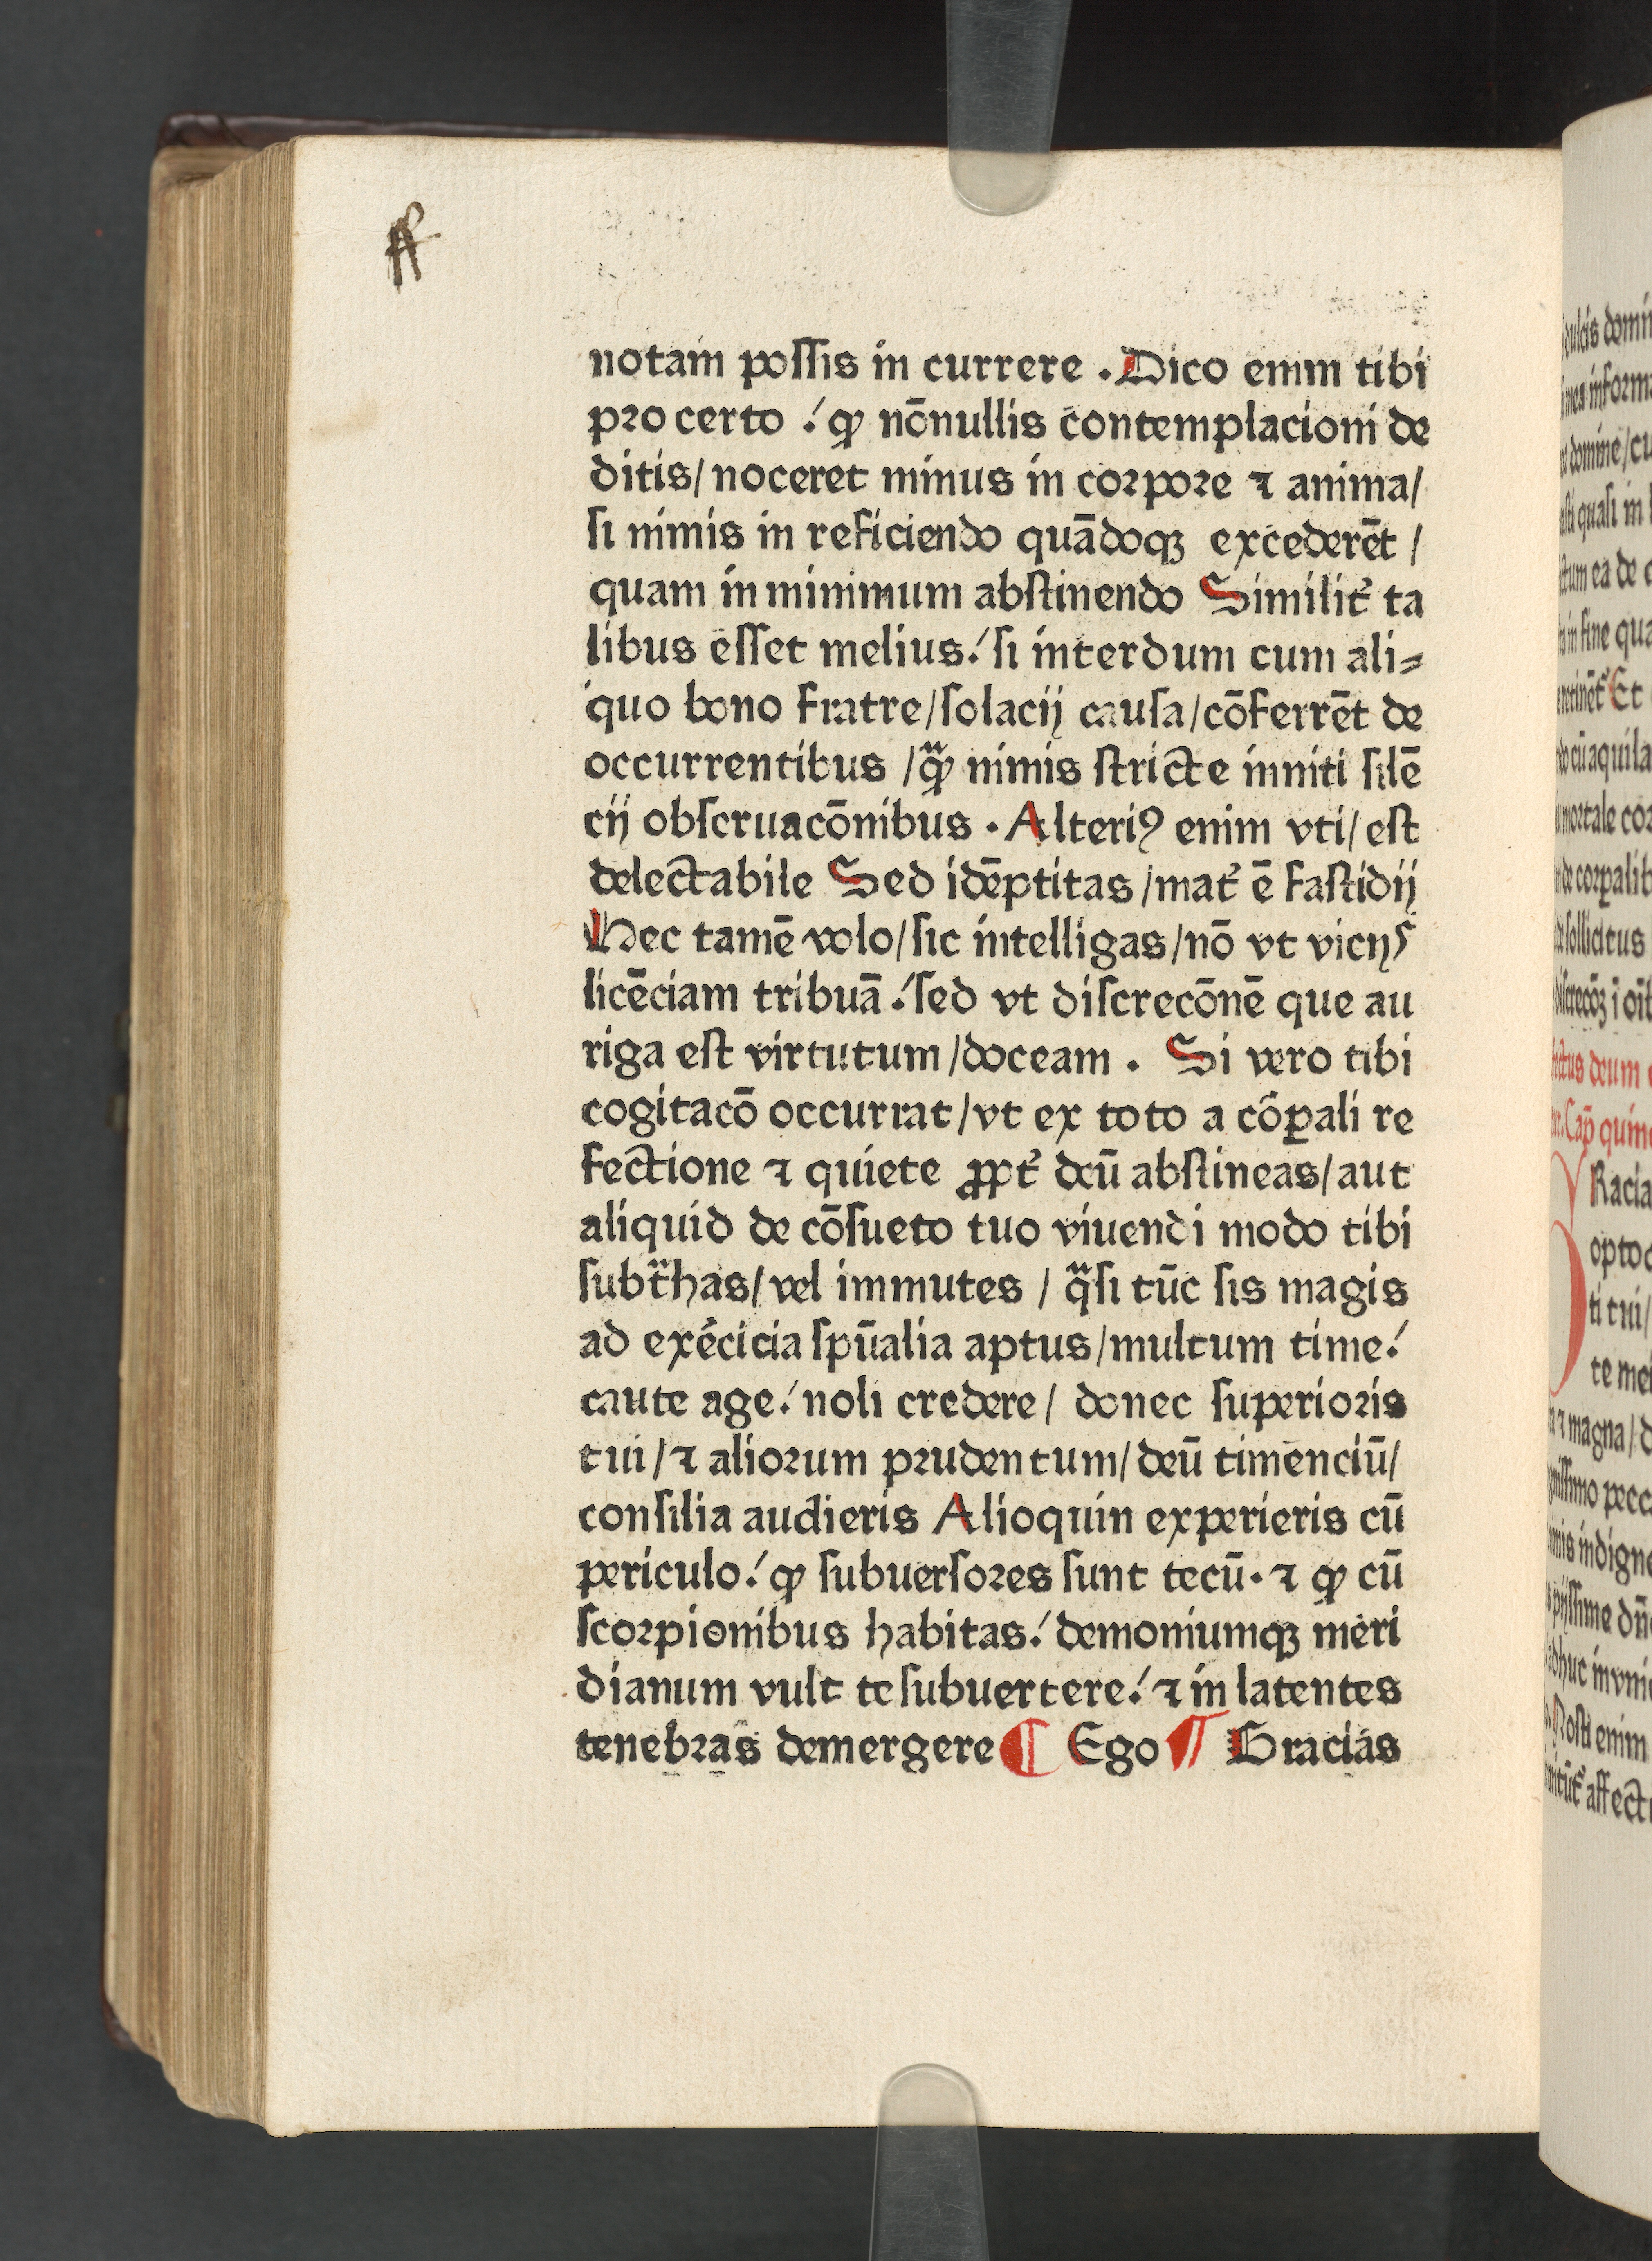 notam poſſis in currere . Dico enim tibi
pro certo ./ ꝙ nōnullis contemplacioni de
ditis/ noceret minus in corpore ⁊ anima/
ſi nimis in reficiendo quādoqꝫ excederēt /
quam in minimum abſtinendo Similit̉ ta
libus eſſet melius./ ſi interdum cum ali⸗
quo bono fratre/ſolacij cauſa/cōferrēt de
occurrentibus /qͣꝫ nimis ſtricte inniti ſilē
cij obſeruacōnibus . Alteriꝰ enim vti/ eſt
delectabile Sed idēptitas /mat̉ ē faſtidij
Nec tamē volo/ſic intelligas/nō vt vicijs
licēciam tribuā./ſed vt diſcrecōnē que au
riga eſt virtutum /doceam . Si vero tibi
cogitacō occurrat/vt ex toto a corꝑali re
fectione ⁊ quiete ꝓpt̉ deū abſtineas/aut
aliquid de cōſueto tuo viuendi modo tibi
ſubtͣhas/vel immutes / qͣſi tūc ſis magis
ad exer̄cicia ſpūalia aptus/multum time./
caute age./ noli credere/ donec ſuperioris
tui /⁊ aliorum prudentum/deū timenciū/
conſilia audieris Alioquin experieris cū
periculo./ ꝙ ſubuerſores ſunt tecū. ⁊ ꝙ cū
ſcorpionibus habitas./ demoniumqꝫ meri
dianum vult te ſubuertere./ ⁊ in latentes
tenebras demergere ¶ Ego ¶ Gracias